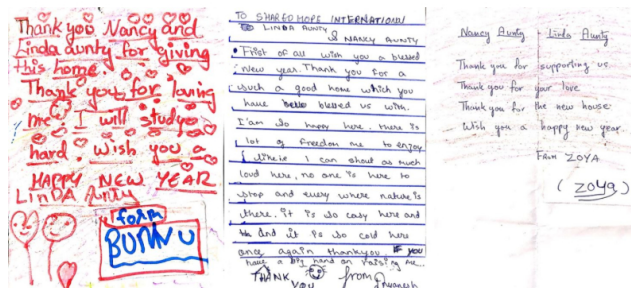 Thank you Nancy and
Linda aunty for giving
this home.
Thank you for loving
me. I will study
hard. Wish you a
HAPPY NEW YEAR
LINDA Aunty
form
BUNNU
TO SHARED HOPE INTERNATIONAL
LINDA AUNTY
& NANCY AUNTY
First of all wish you a blessed
new year. Thank you for a
such a good home which you
have blessed us with.
I'am so happy here. there is
lot of freedom me to enjoy
I can shout as much
loud here, no one is here to
stop and every where nature is
there. it is so cosy here and
And it is so cold here
once again thankyou IF YOU
have a big hand on raising me...
THANK YOU
from
Nancy Aunty Linda Aunty
Thank you for supporting us
Thank you for your love
Thank you for the new house
Wish you a happy new year.
FROM ZOYA
(ZOYA)